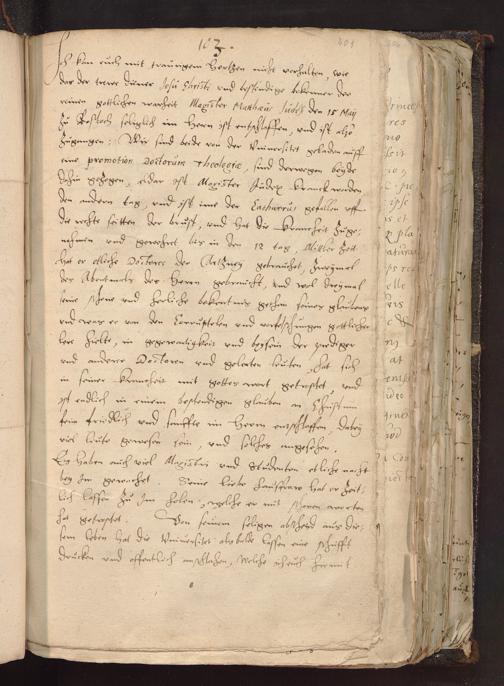 103.
401
Ich kan euch mit traurigem Hertzen nicht verhalten, wie
das der trewe diener Jesu Christi und bestendige bekenner der
reinen gottlichen warheit Magister Matthæus Judex den 15 Maij
zu Rostock seliglich im Herrn ist entschlaffen, und ist also
zugangen: Wir sind beide von der Universitet geladen auff
eine promotion Doctorum Theologiæ, sind derwegen beyde
dahin gezogen, alda ist Magister Judex kranck worden
den andern tag, und ist ime der Catharrus gefallen uff
die rechte seitten der brust, und hat die kranckheit zuge-
nohmen und geweret bis in den 12 tag, Mitler Zeit
hat er etliche Doctores der Artzney gebrauchet, zweymal
des Abentmals des Herrn gebraucht, und wol dreymal
seine schone und herliche bekentnis gethan seines glaubens
und was er von den Corruptelen und verfelschungen gottlicher
lere hielte, in gegenwertigkeit und beysein der prediger
und anderer Doctoren und gelerten leuten, hat sich
in seiner kranckheit mit gottes wort getröstet, und
ist endlich in einem bestendigen glauben an Christum
fein friedlich und sanffte im Herrn entschlaffen, dabey
viel leute gewesen sein, und solches angesehen.
Es haben auch viel Magistri und Studenten etliche nacht
bey im gewachet. Seine liebe hausfraw hat er zeit-
lich lassen zu im holen, welche er mit schonen worten
hat getröstet. Von seinem seligen abschied aus die-
sem leben hat die Universitet alsbalde lassen eine schrifft
drucken und offentlich anschlahen, welche ich euch hiermit